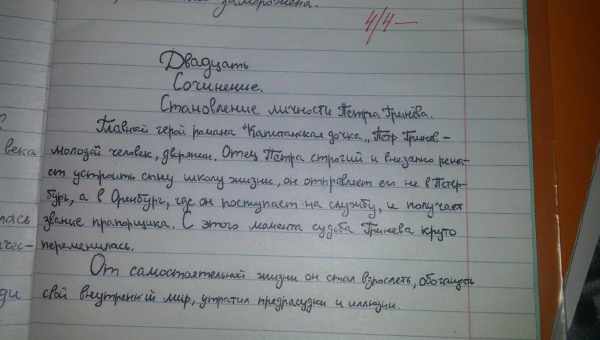 заморожена.
4/4-
Двадцать
Сочинение.
Становление личности Петра Гринёва.
Главной герой романа "Капитанская дочка„ Пётр Гринёв -
века молодой человек, дворянин. Отец Петра строгий и внезапно реша-
ет устроить сыну школу жизни, он отправляет его не в Петер-
бург, а в Оренбург, где он поступает на службу, и получает
лась звание прапорщика. С этого момента судьба Гринёва круто
переменилась.
От самостоятельной жизни он стал взрослеть, обогащать
свой внутренный мир, утратил предрасудки и иллюзии.